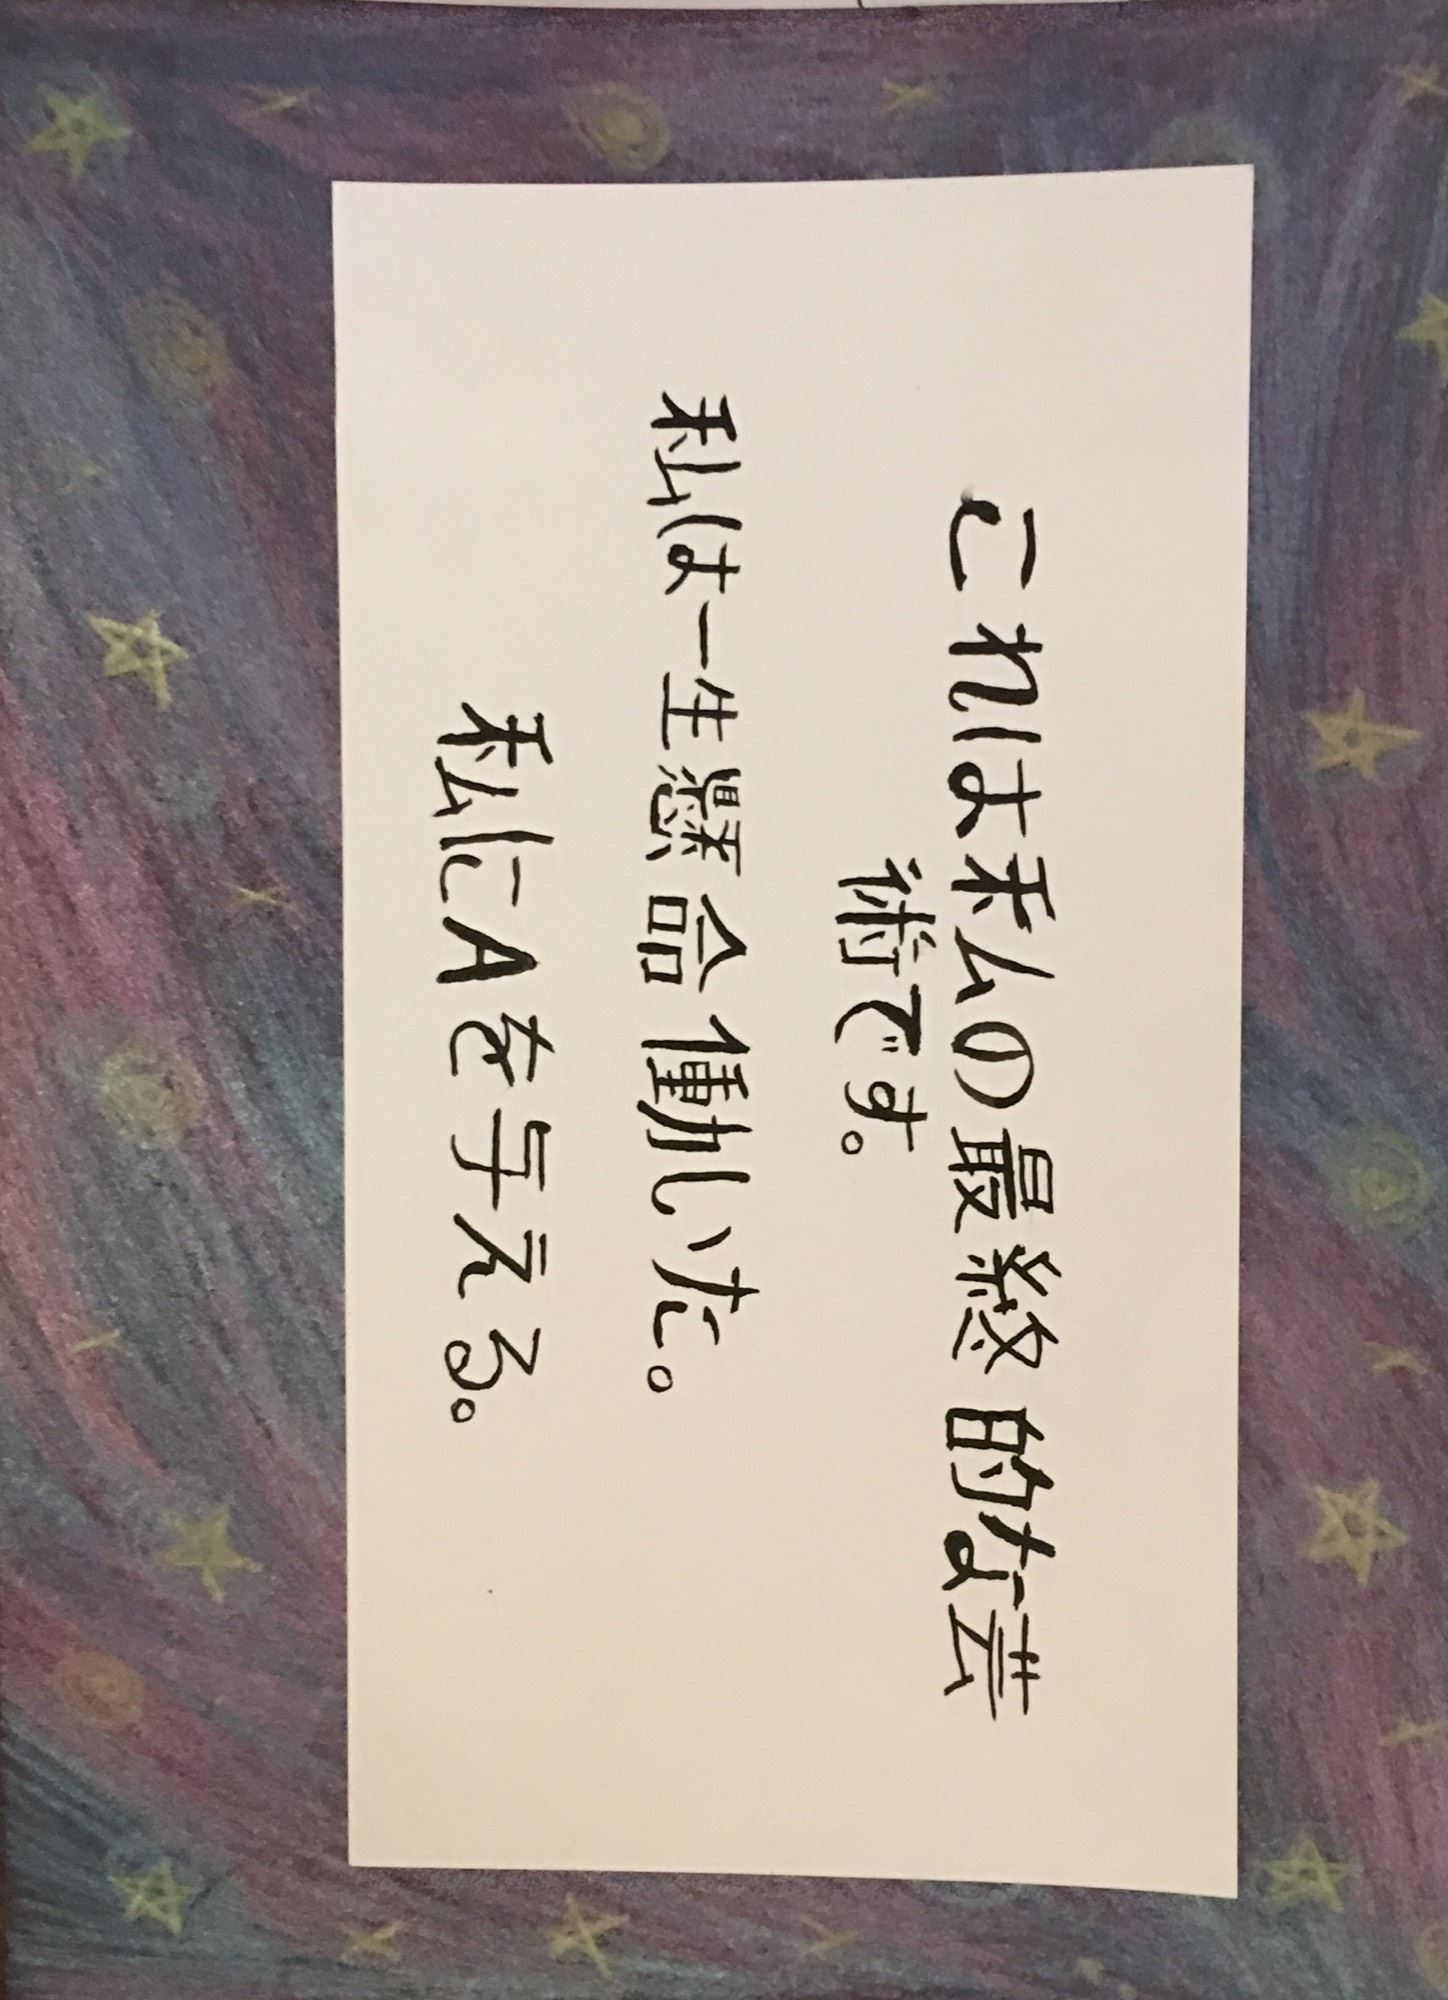 これは私の最終的な芸
術です。
私は一生懸命働いた。
私にAを与える。